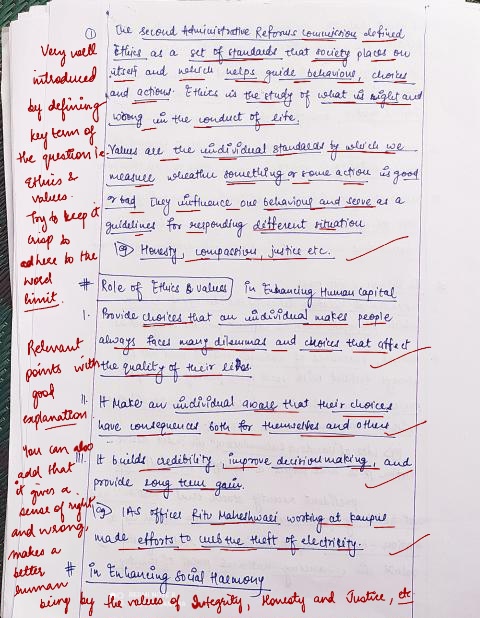 ①
The second Administrative Reforms commission defined
Ethics as a set of standards that society places on
itself and which helps guide behaviour, choices
and actions. Ethics is the study of what is right and
wrong in the conduct of life.
Values are the individual standards by which we
measure wheather something or some action is good
or bad They influence our behaviour and serve as a
guidelines for responding different situation
eg Honesty, compassion, justice etc.
# Role of Ethics & values in Enhancing Human Capital
I. Provide choices that an individual makes people
always faces many dilemmas and choices that affect
the quality of their lives.
II. It Make an individual aware that their choices
have consequences both for themselves and others
III. It builds credibility, improve decision making, and
provide long term gain.
eg IAS officer Ritu Maheshwari, working at Kanpur
made efforts to curb the theft of electricity.
# in Enhancing Social Harmony
Very well
introduced
by defining
key term of
the question i.e
Ethics &
values.
Try to keep it
crisp to
adhere to the
word
limit.
Relevant
points with
good
explanation
You can also
add that
it gives a
sense of right
and wrong,
makes a
better
human
being by the values of Integrity, Honesty and Justice, etc